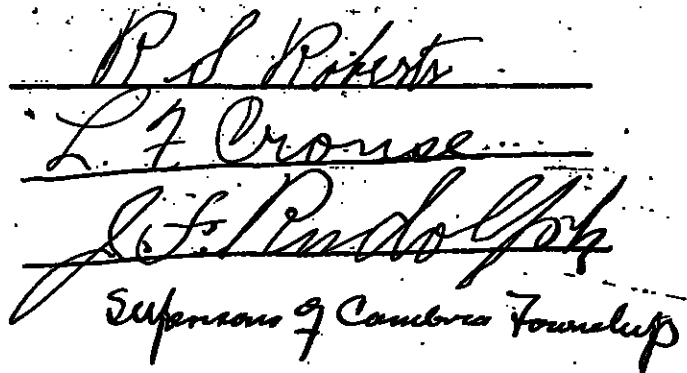 R S Roberts
L. F Crouse
J. F. Rudolph
Supervisors of Cambria Township